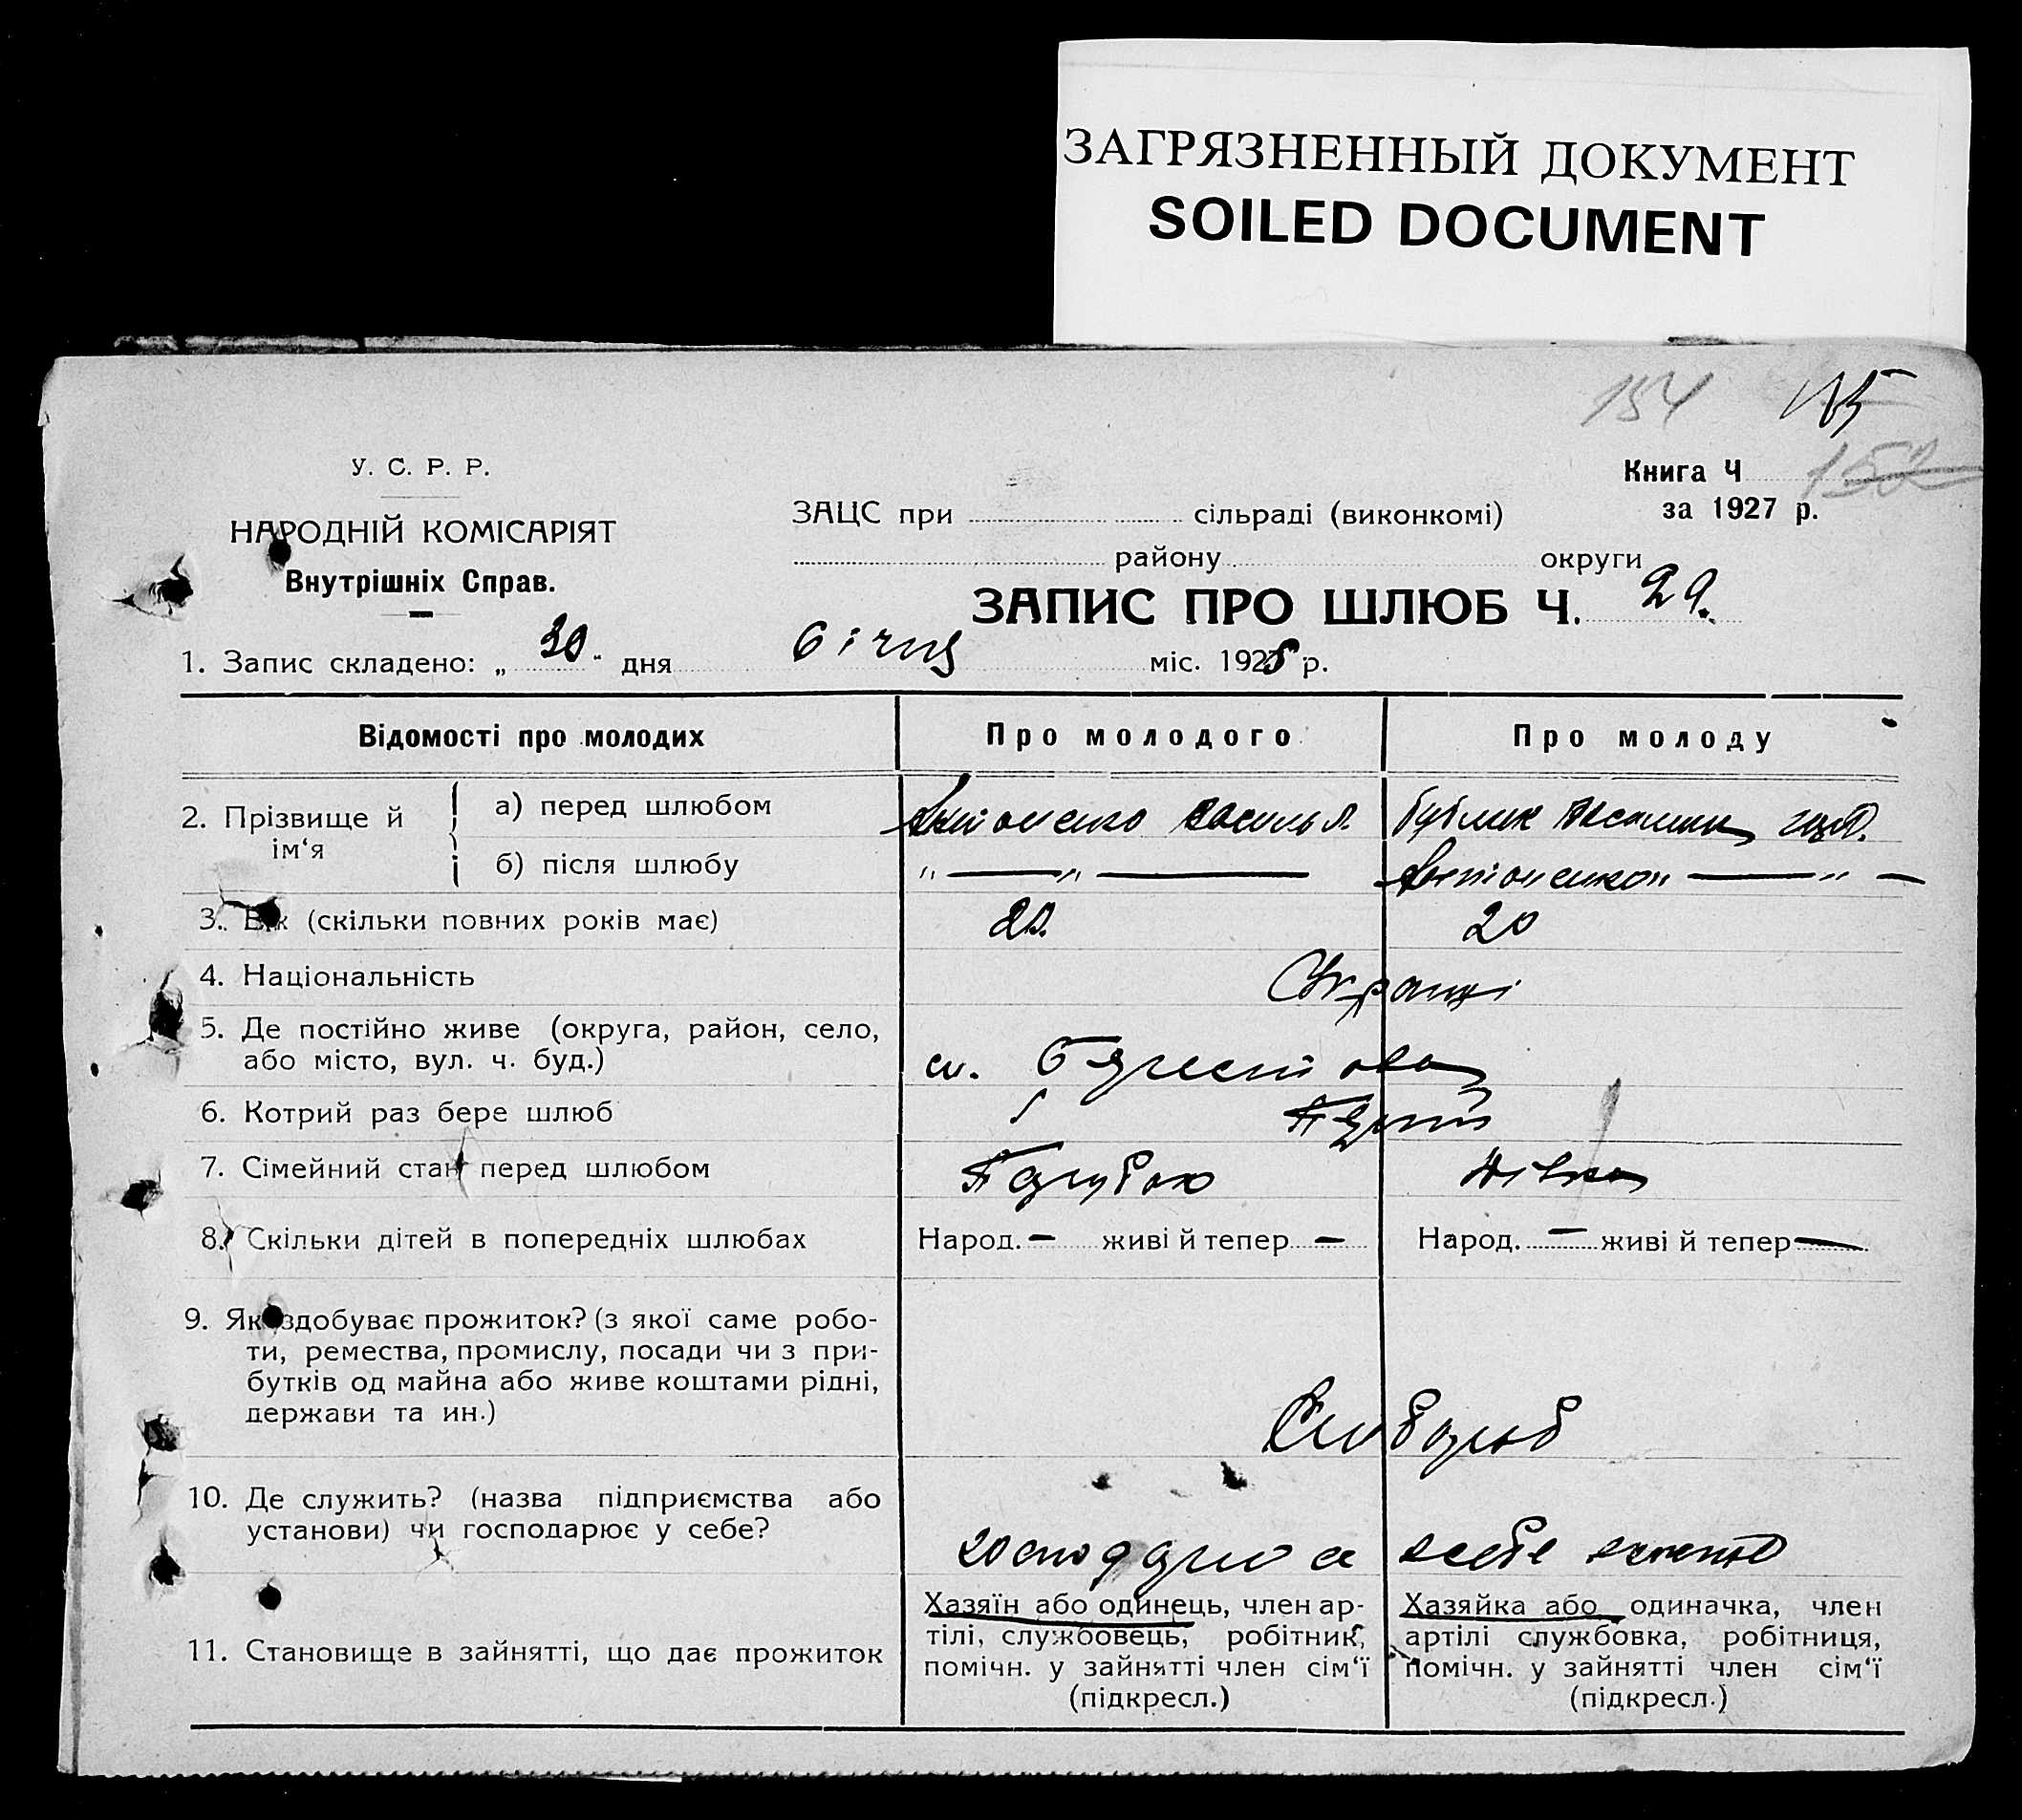 ЗАГРЯЗНЕННЫЙ ДОКУМЕНТ
SOILED DOCUMENT
154 155
У. С. Р. Р.
Книга Ч 152
НАРОДНІЙ КОМІСАРІЯТ
ЗАЦС при сільраді (виконкомі)
за 1927 р.
Внутрішніх Справ.
району округи
ЗАПИС ПРО ШЛЮБ Ч. 29.
1. Запис складено: „ 30 " дня Січня міс. 1928 р.
Відомості про молодих Про молодого Про молоду
2. Прізвище й ім‘я
а) перед шлюбом Антоненко Василь Бублик
б) після шлюбу " — " — Антоненко " — " —
3. Вік (скільки повних років має) 20
4. Національність Українці
5. Де постійно живе (округа, район, село,
або місто, вул. ч. буд.) сл.
6. Котрий раз бере шлюб Перший
7. Сімейний стан перед шлюбом Парубок Дівка
8. Скільки дітей в попередніх шлюбах Народ. — живі й тепер — Народ. — живі й тепер —
9. Як здобуває прожиток? (з якої саме робо-
ти, ремества, промислу, посади чи з при-
бутків од майна або живе коштами рідні,
держави та ин.) Хлібороб
10. Де служить? (назва підприємства або
установи) чи господарює у себе?
Хазяїн або одинець, член ар-
тілі, службовець, робітник,
помічн. у зайнятті член сім‘ї
(підкресл.)
Хазяйка або одиначка, член
артілі службовка, робітниця,
помічн. у зайнятті член сім‘ї
(підкресл.)
11. Становище в зайнятті, що дає прожиток